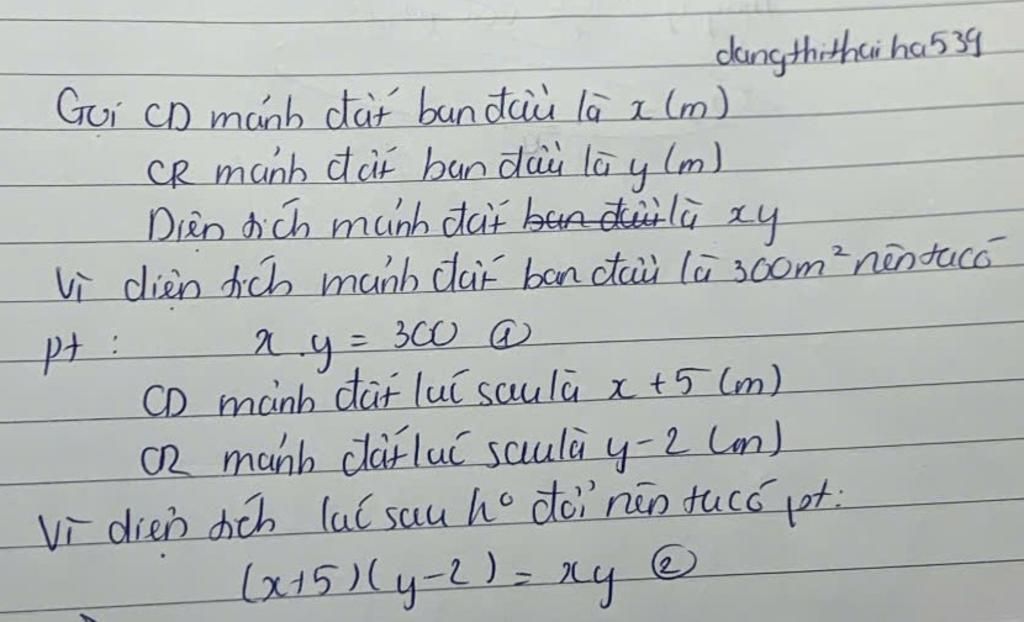 dangthithaiha539
Gọi CD mảnh đất ban đầu là x (m)
CR mảnh đất ban đầu là y (m)
Diện tích mảnh đất ban đầu là xy
Vì diện tích mảnh đất ban đầu là 300m² nên ta có
pt : x.y = 300 ①
CD mảnh đất lúc sau là x + 5 (m)
CR mảnh đất lúc sau là y - 2 (m)
Vì diện tích lúc sau ko đổi nên ta có pt:
(x+5)(y-2) = xy ②